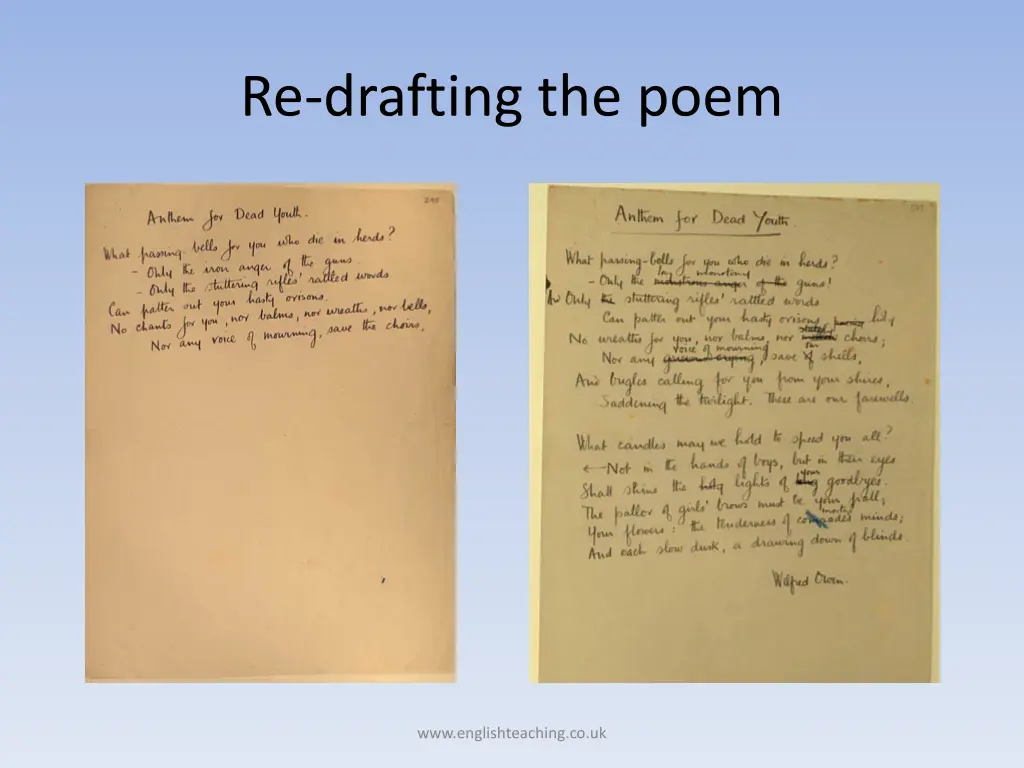 Re-drafting the poem
295
Anthem for Dead Youth.
What passing-bells for you who die in herds?
- Only the iron anger of the guns
- Only the stuttering rifles' rattled words
Can patter out your hasty orisons.
No chants for you, nor balms, nor wreaths, nor bells,
Nor any voice of mourning, save the choirs,
Anthem for Dead Youth.
What passing-bells for you who die in herds?
monotony
- Only the monstrous anger of the guns!
Only the stuttering rifles' rattled words
Can patter out your hasty orisons
No wreaths for you, nor balms, nor choirs;
voice of mourning
Nor any , save shells,
And bugles calling for you from your shires,
Saddening the twilight. These are our farewells.
What candles may we hold to speed you all?
Not in the hands of boys, but in their eyes
your
Shall shine the holy lights of goodbyes.
The pallor of girls' brows must be your pall;
Your flowers: the tenderness of comrades minds;
And each slow dusk, a drawing down of blinds.
Wilfred Owen.
www.englishteaching.co.uk